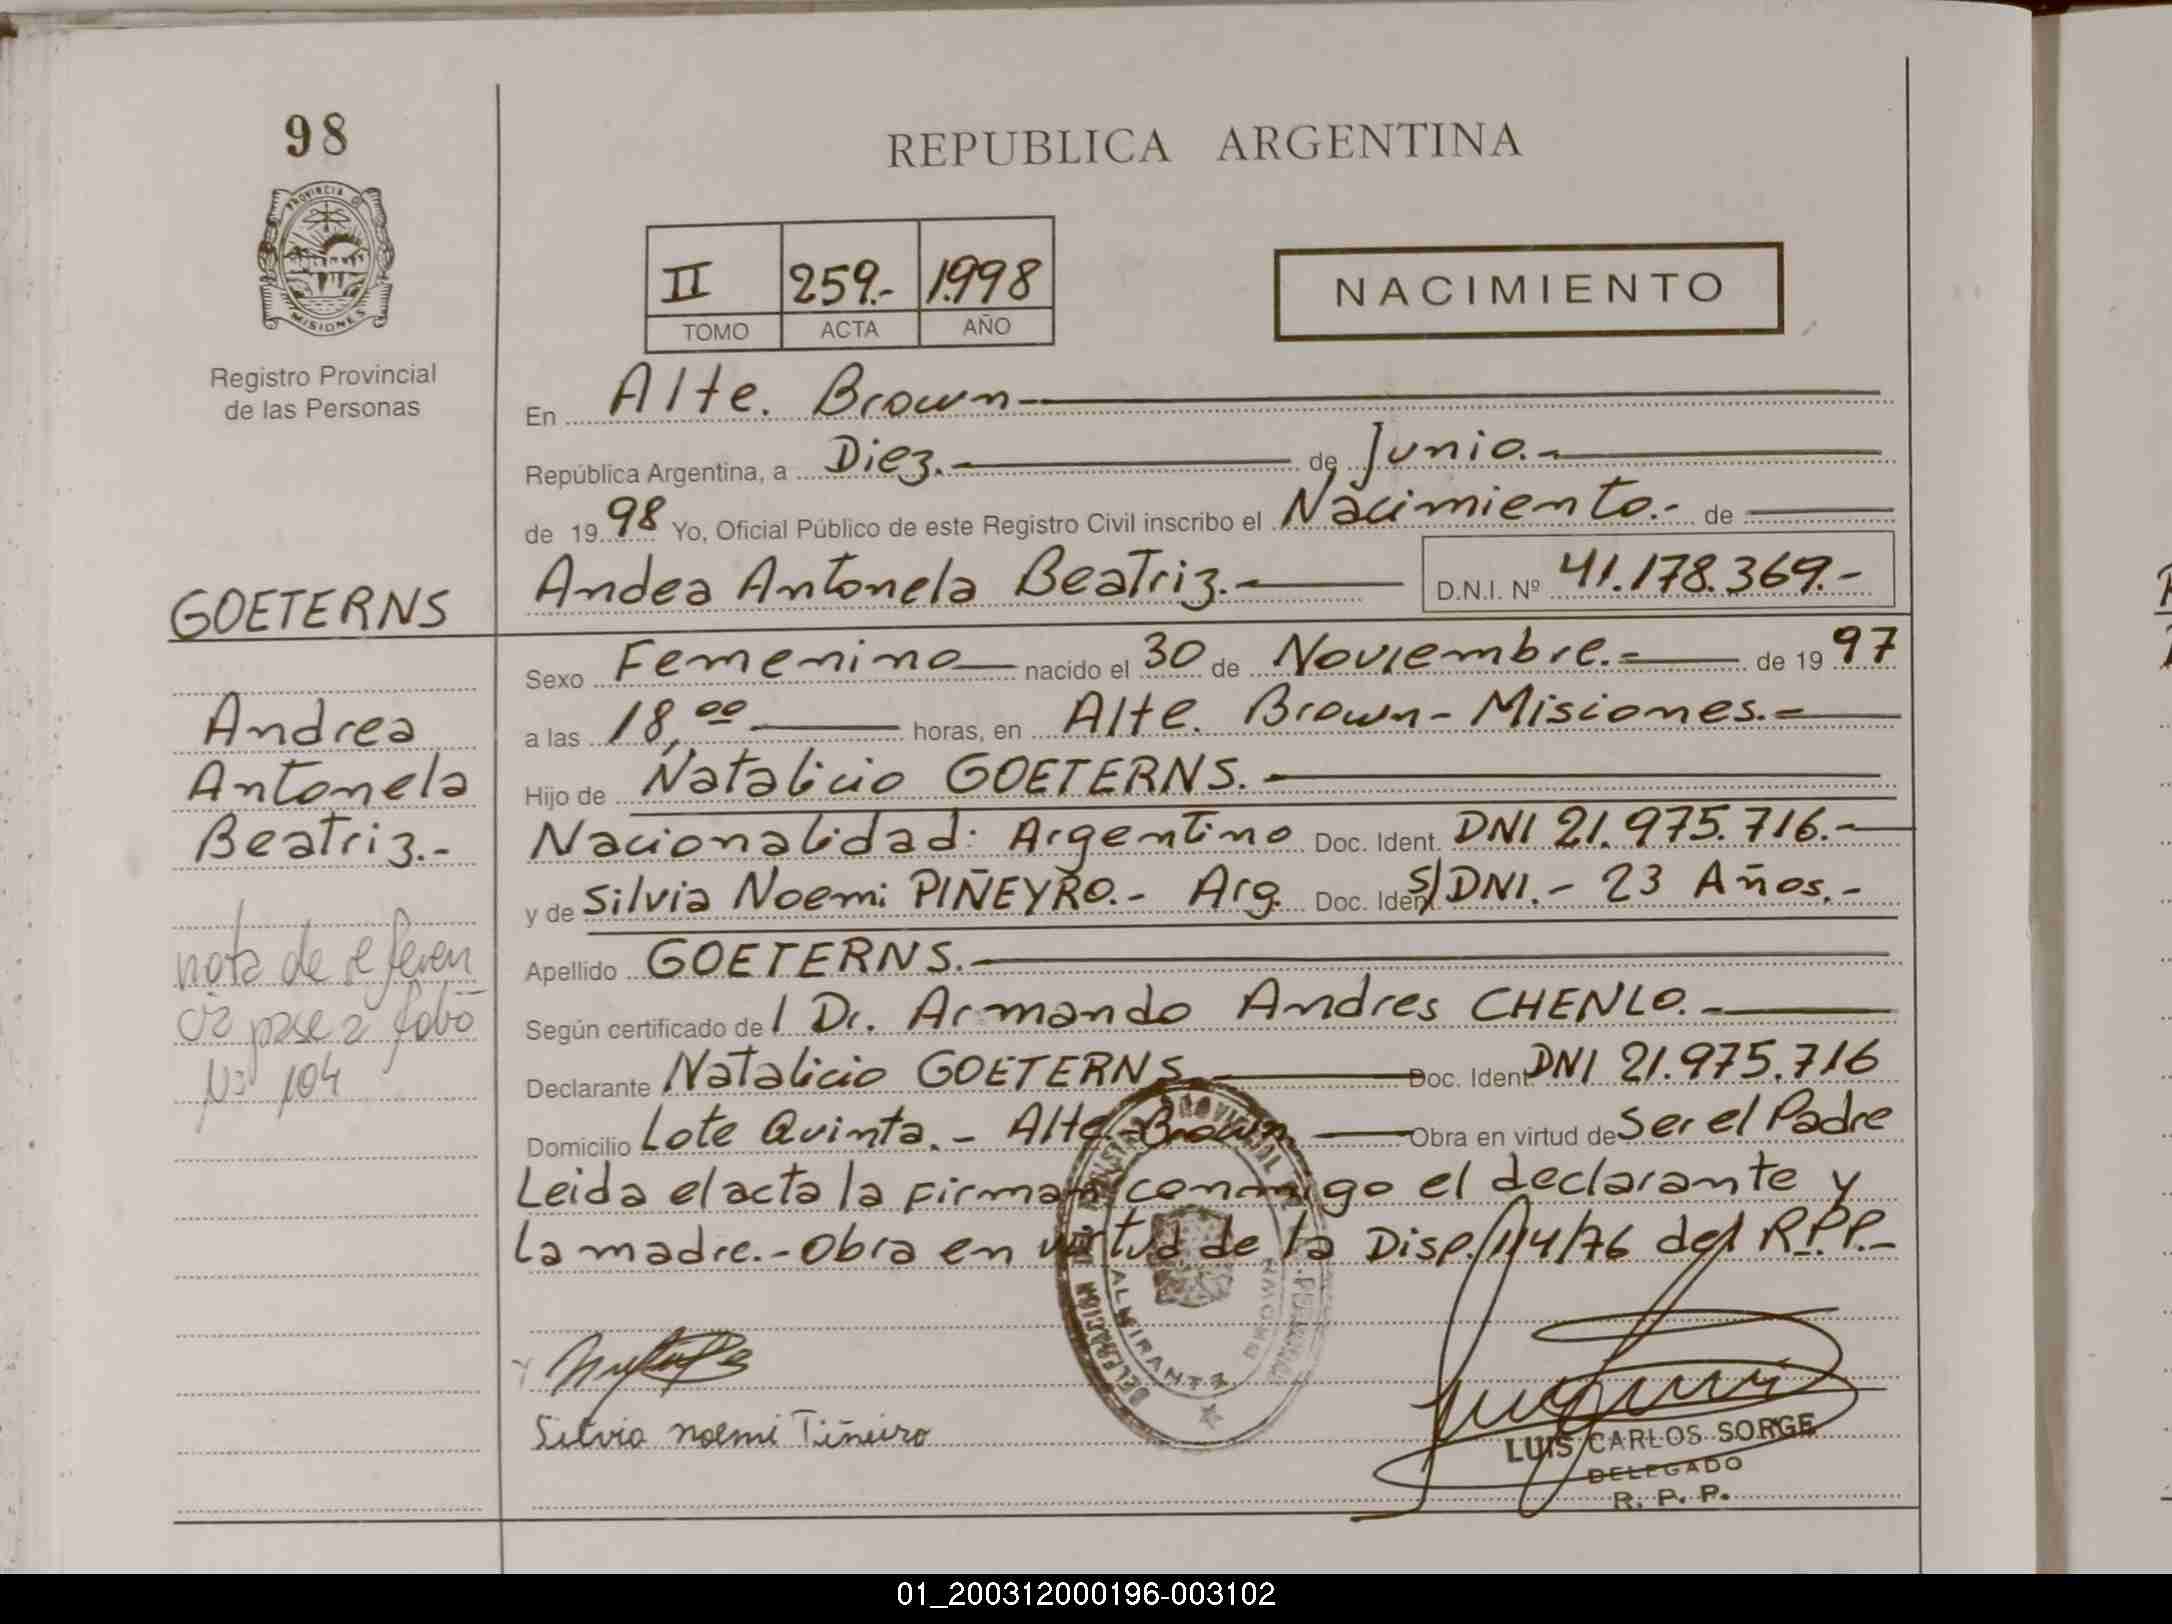 98
PROVINCIA DE
MISIONES
Registro Provincial
de las Personas
GOETERNS
Andrea
Antonela
Beatriz.-
nota de referen
cia pase a folio
Nº 104
REPUBLICA ARGENTINA
II 259.- 1998
TOMO ACTA AÑO
NACIMIENTO
En Alte. Brown
República Argentina, a Diez.- de Junio.-
de 1998 Yo, Oficial Público de este Registro Civil inscribo el Nacimiento.- de
Andea Antonela Beatriz.- D.N.I. Nº 41.178.369.-
Sexo Femenino nacido el 30 de Noviembre.- de 1997
a las 18,00 horas, en Alte. Brown - Misiones.-
Hijo de Natalicio GOETERNS.
Nacionalidad: Argentino Doc. Ident. DNI 21.975.716.-
y de Silvia Noemi PIÑEYRO.- Arg. Doc. Ident. S/DNI.- 23 Años.-
Apellido GOETERNS.-
Según certificado del Dr. Armando Andres CHENLO.-
Declarante Natalicio GOETERNS Doc. Ident DNI 21.975.716
Domicilio Lote Quinta.- Alte. Brown Obra en virtud de Ser el Padre
Leida el acta la firman conmigo el declarante y
La madre.- Obra en virtud de la Disp. 114/76 del R.P.P.-
Silvia noemi Piñeiro
LUIS CARLOS SORGE
DELEGADO
R. P. P.
01_200312000196-003102